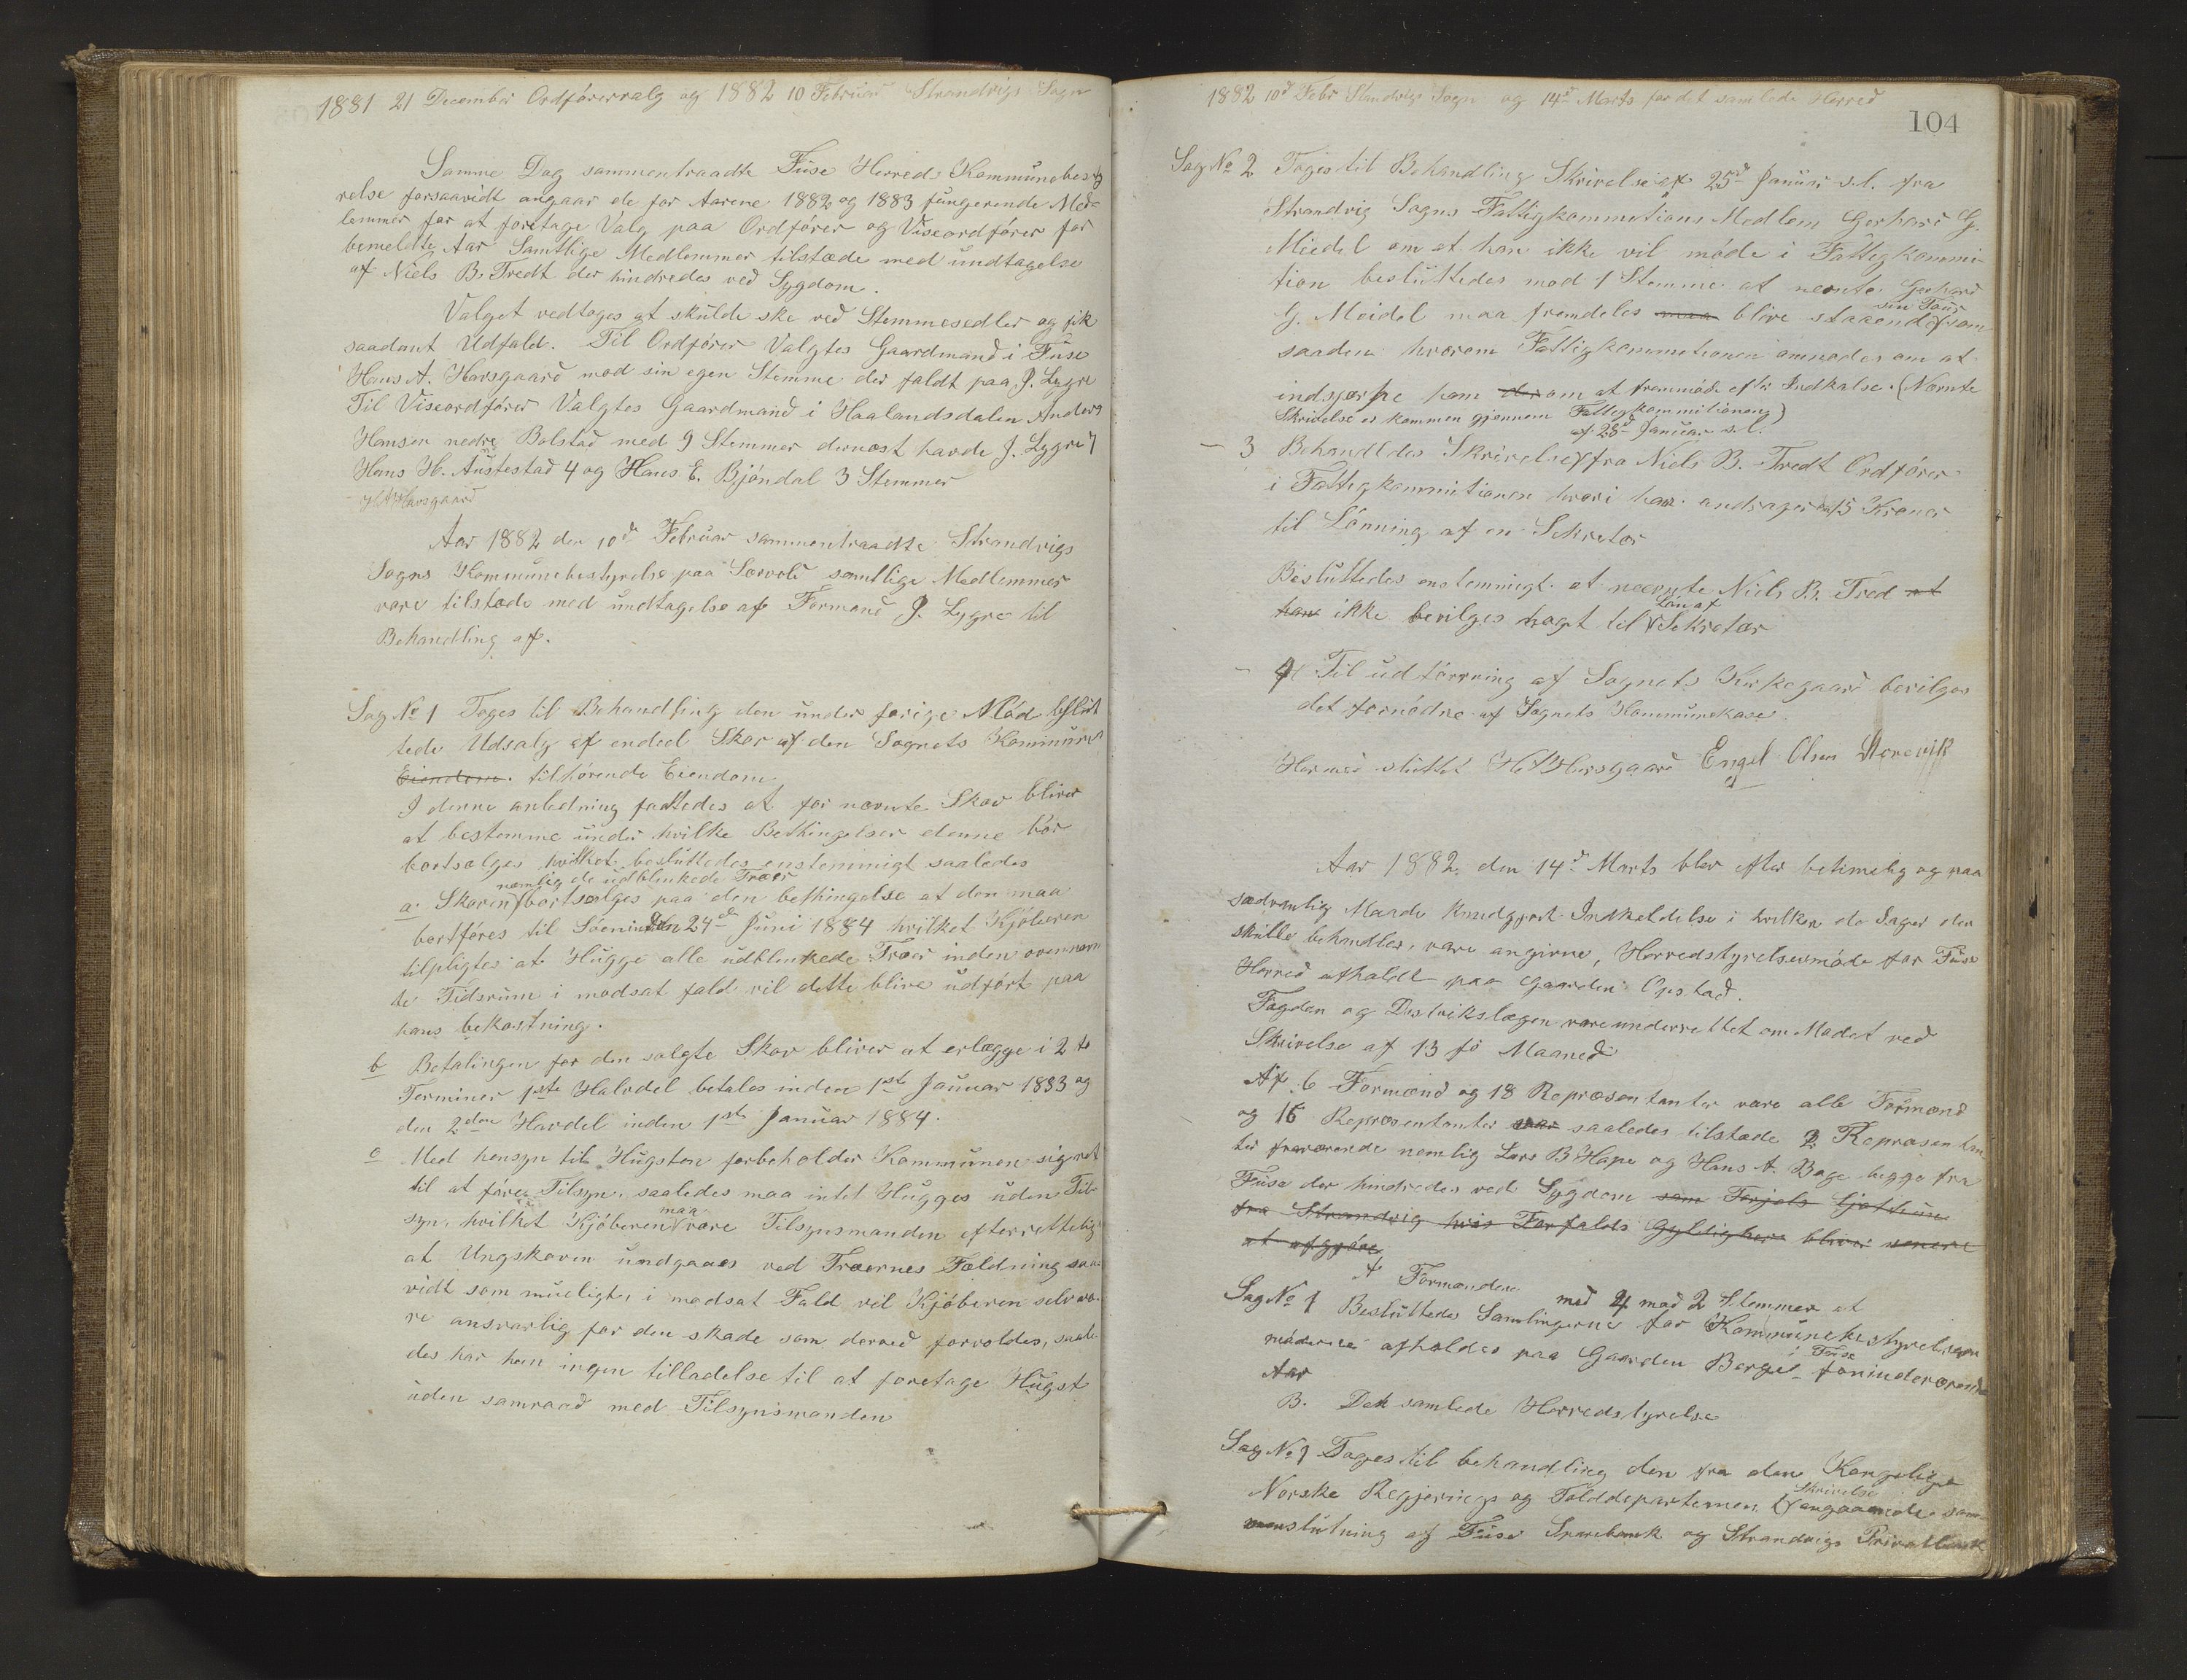 1881 21 December Ordförervalg og 1882 10 Februar Strandvigs Sogn
Samme Dag sammentraadte Fuse Herred Kommunebesty
relse forsaavidt angaar de for Aarene 1882 og 1883 fungerende Med-
lemmer for at foretage Valg paa Ordförer og Viseordförer for
bemeldte Aar Samtlige Medlemmer tilstæde med undtagelse
af Niels B. Tredt der hindredes ved Sygdom.
Valget vedtoges at skulde ske ved Stemmesedler og fik
saadant Udfald. Til Ordförer Valgtes Gaardmand i Fuse
Hans A. Havsgaard mod sin egen Stemme der faldt paa J. Lygre
Til Viseordförer Valgtes Gaardmand i Haalandsdalen Anders
Hansen nedre Bolstad med 9 Stemmer dernæst havde J. Lygre 7
Hans H. Austestad 4 og Hans E. Bjöndal 3 Stemmer
H A Havsgaard
Aar 1882 den 10d Februar sammentraadte Strandvigs
Sogns Kommunebestyrelse paa Sævold samtlige Medlemmer
vare tilstæde med undtagelse af Formand J. Lygre til
Behandling af.
Sag No 1 Toges til Behandling den under forige Möde beslut
tede Udsalg af endeel Skov af den Sognets Kommune
Eiendom. tilhörende Eiendom
I denne anledning fattedes at for nævnte Skov bliver
at bestemme under hvilke Bethingelser denne bör
bortsælges hvilket besluttedes enstemmigt saaledes
nemlig de udblinkede Træer
a. Skoven bortsælges paa den bethingelse at den maa
bortföres til Söen inden 24de Juni 1884 hvilket Kjöberen
tilpligtes at Hugge alle udblinkede Træer inden ovennævn
te Tidsrum i modsat fald vil dette blive udfört paa
hans bekostning.
b Betalingen for den solgte Skov bliver at erlægge i 2 to
Terminer 1ste Halvdel betales inden 1ste Januar 1883 og
den 2den Havdel inden 1ste Januar 1884.
c Med hensyn til Hugsten forbeholder Kommunen sig ret
til at före Tilsyn, saaledes maa intet Hugges uden Til-
syn, hvilket Kjöberen maa være Tilsynsmanden efterrettelig
at Ungskoven undgaaes ved Træernes Fældning saa-
vidt som mueligt, i modsat Fald vil Kjöberen selv væ-
re ansvarlig for den skade som derved forvoldes, saale-
des har han ingen tilladelse til at foretage Hugst
uden samraad med Tilsynsmanden
1882 10d Febr Standvigs Sogn og 14d Marts for det samlede Herred
104
Sag No 2 Toges til Behandling Skrivelse af 25d Januar d.A. fra
Strandvig Sogns Fattigkommitions Medlem Gerhard G.
Miedel om at han ikke vil möde i Fattigkommi-
tion besluttedes mod 1 Stemme at nevnte Gerhard
G. Meidel maa fremdeles maa blive staaende sin Tour som
saadan hvorom Fattigkommitionen anmodes om at
indsjærpe ham derom at fremmöde efter Indkalse. (Nævnte
Skrivelse er kommen gjennem Fattigkommitionen)
af 28d Januar d.A.
- 3 Behandldes Skrivelse fra Niels B. Tredt Ordförer
i Fattigkommitionen hvori han andrager om 15 Kroner
til Lönning af en Sekretær
Besluttedes enstemmigt at nævnte Niels B. Tred at
han ikke bevilges noget til Lön af Sekretær
- 4 Til udtörrning af Sognets Kirkegaard bevilges
det fornödne af Sognets Kommunekase.
Hermed sluttet H A Havsgaard Engel Olsen Berevik
Aar 1882 den 14d Marts blev efter betimelig og paa
sædvanlig Maade kundgjort Indkaldelse i hvilken de Sager der
skulle behandles, vare angivne, Herredstyrelsesmöde for Fuse
Herred afholdt paa Gaarden Opstad.
Fogden og Distrikslægen vare underrettet om Mødet ved
Skrivelse af 13 fö Maaned
Af 6 Formænd og 18 Repræsentanter vare alle Formænd
og 16 Repræsentanter var saaledes tilstæde 2 Repræsentan
ter fraværende nemlig Lars B Hope og Hans A. Boge begge fra
Fuse der hindredes ved Sygdom som Terjels Ljotheim
fra Strandvig hvis Forfalds Gyldighed bliver senere
at afgjöre
A Formænden
Sag No 1 Besluttedes med 4 mod 2 Stemmer at
Samlingerne for Kommunebestyrelsen
möderne afholdes paa Gaarden Berge i Fuse for inderværende
Aar
B. Det samlede Herredstyrelse
Sag No 1 Toges til behandling den fra den Kongelige
Norske Regjerings og Tolddepartement Skrivelse angaaende sam-
menslutning af Fuse Sparebank og Strandvigs Privatbank